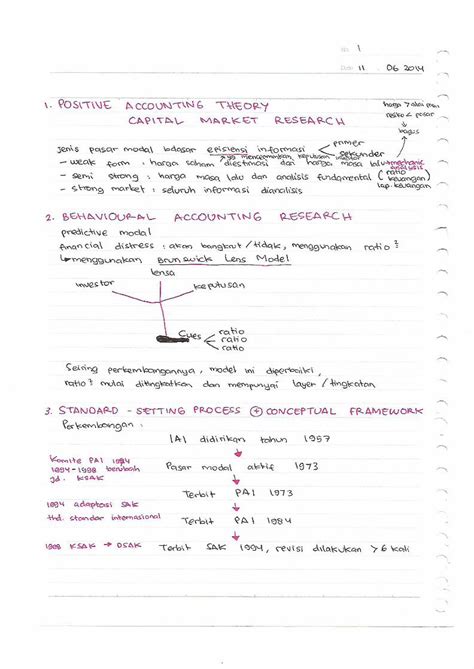 No 1
Date 11 06 2014
1. POSITIVE ACCOUNTING THEORY
CAPITAL MARKET RESEARCH
harga > nilai maka
resiko < pasar
bagus
jenis pasar modal berdasar efisiensi informasi
primer
sekunder
yg mencerminkan keputusan investor
- weak form : harga saham diestimasi dari harga masa lalu → mechanic analysis
- semi strong : harga masa lalu dan analisis fundamental (ratio keuangan) lap. keuangan
- strong market : seluruh informasi dianalisis
2. BEHAVIOURAL ACCOUNTING RESEARCH
predictive modal
financial distress : akan bangkrut / tidak, menggunakan ratio²
↳ menggunakan Brunswick Lens Model
lensa
investor
keputusan
Cues
ratio
ratio
ratio
Seiring perkembangannya, model ini diperbaiki,
ratio² mulai ditingkatkan dan mempunyai layer / tingkatan
3. STANDARD - SETTING PROCESS + CONCEPTUAL FRAMEWORK
Perkembangan :
IAI didirikan tahun 1957
Komite PAI 1984
1994-1998 berubah
jd. KSAK
Pasar modal aktif 1973
Terbit PAI 1973
1994 adaptasi SAK
thd. standar internasional
Terbit PAI 1984
1998 KSAK → DSAK
Terbit SAK 1994, revisi dilakukan > 6 kali